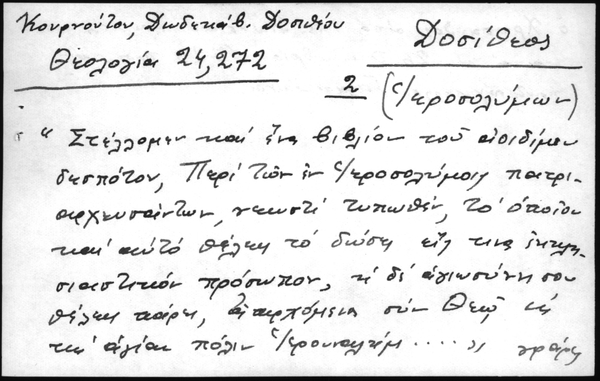 Κουρνούτου, Δωδεκάβ. Δοσιθέου
Θεολογία 24, 272
Δοσίθεος
2 (Ἱεροσολύμων)
"Στέλλομεν καί ἕνα βιβλίον τοῦ ἀοιδίμου
δεσπότου, Περί τῶν ἐν Ἱεροσολύμοις πατρι-
αρχευσάντων, νεωστί τυπωθέν, τό ὁποῖον
καί αὐτό θέλει τό δώσει εἰς τινα ἐκκλη-
σιαστικόν πρόσωπον, ἡ δέ ἁγιωσύνη σου
θέλει πάρει, ἀπερχόμενος σύν Θεῷ εἰς
τήν ἁγίαν πόλιν Ἱερουσαλήμ ....." γράφει